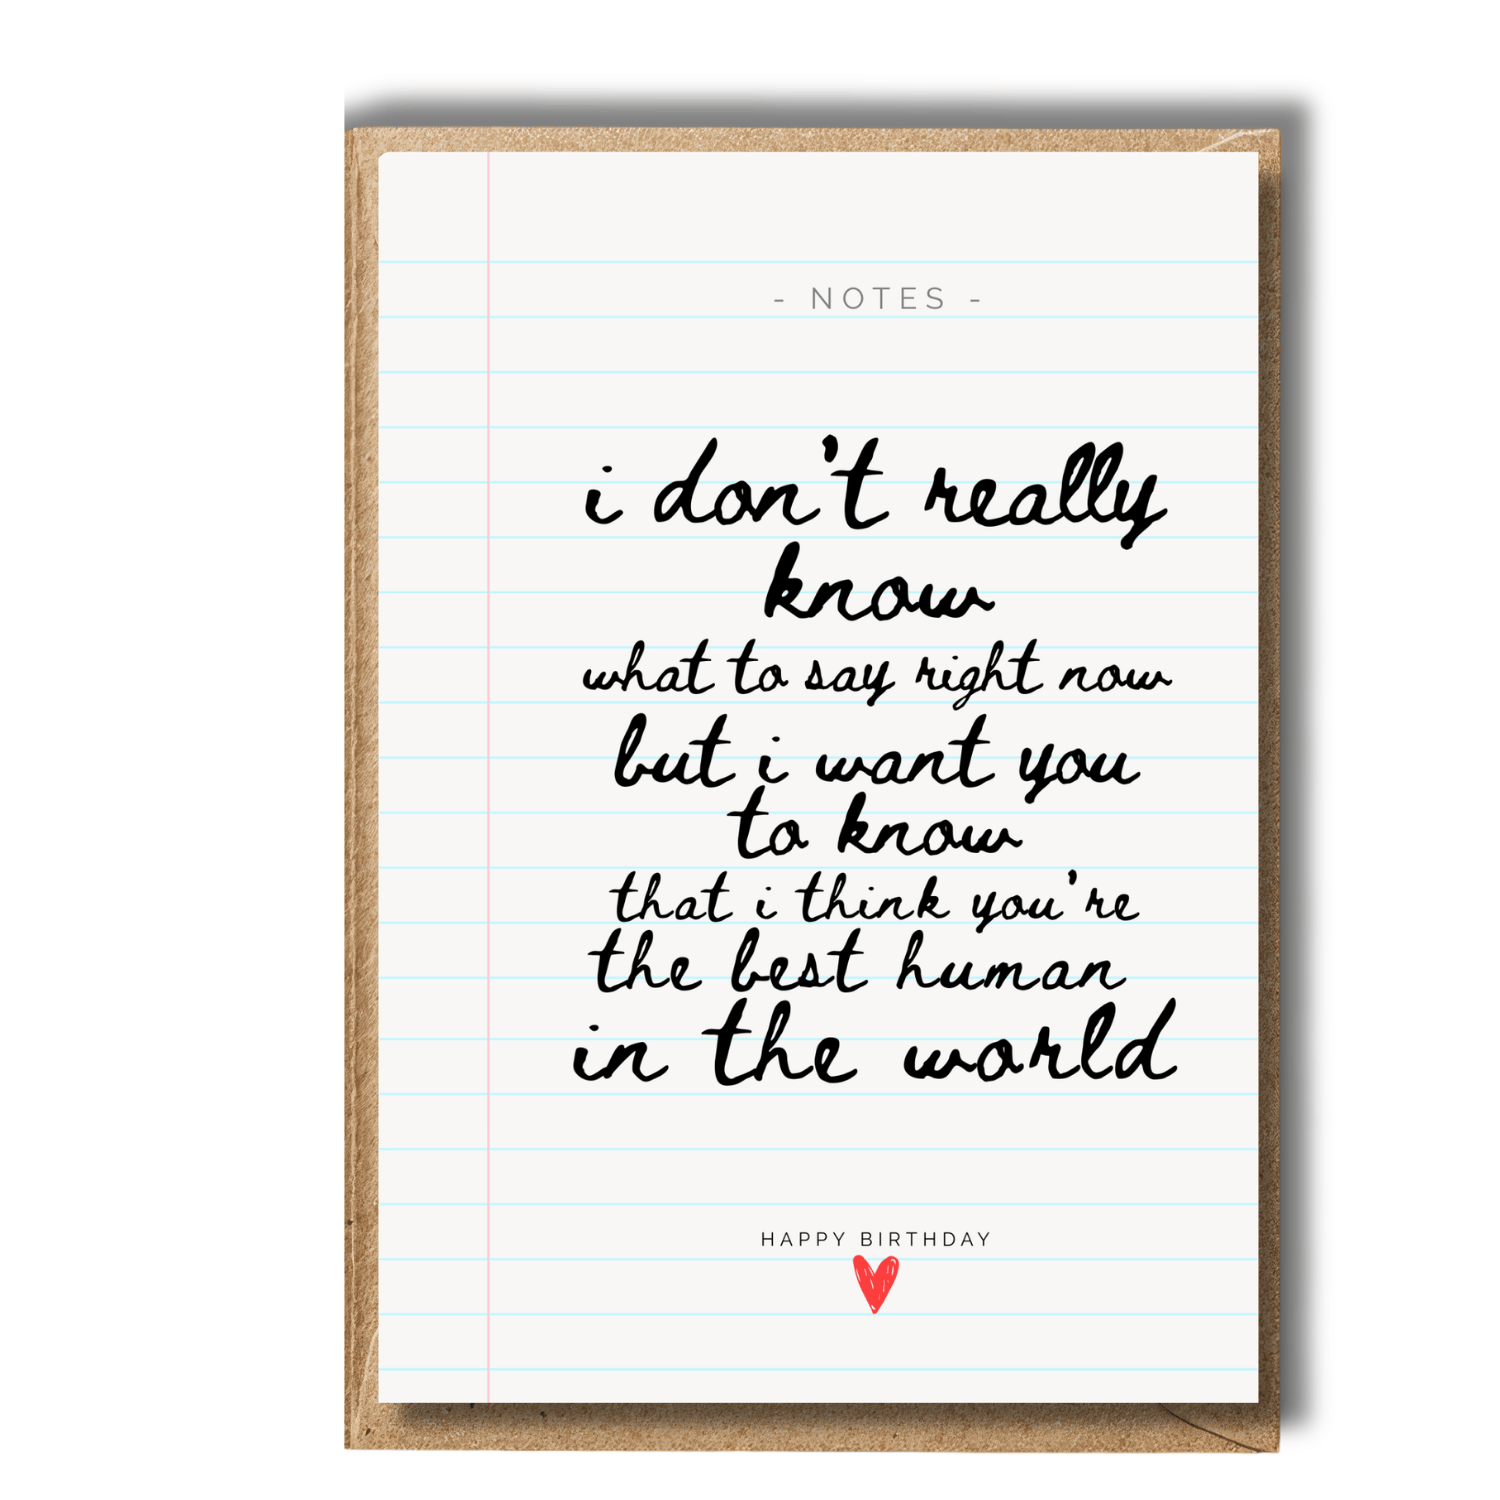 - NOTES -
i don't really
know
what to say right now
but i want you
to know
that i think you're
the best human
in the world
HAPPY BIRTHDAY